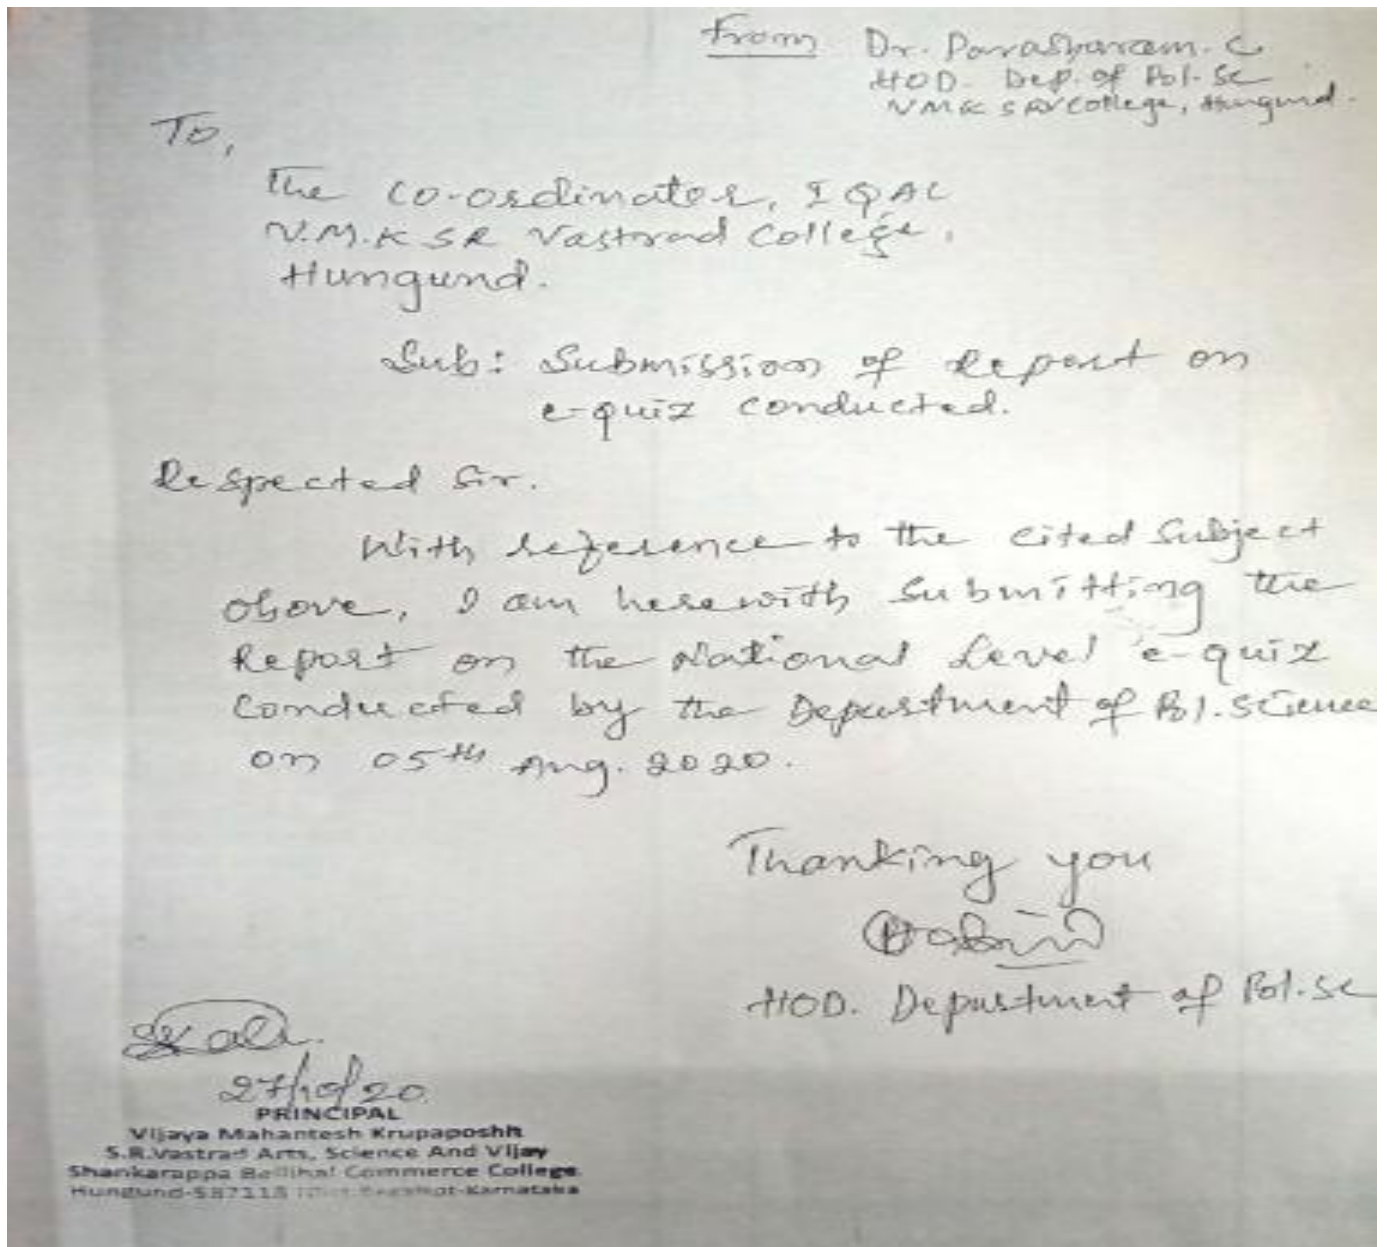 From Dr. Parashuram. C
HOD. Dep. of Pol. Sc
VMK SRV College, Hungund.
To,
The Co-ordinator, IQAC
V.M.K SR Vastrad College,
Hungund.
Sub: Submission of Report on
e-quiz conducted.
Respected Sir.
With reference to the cited Subject
above, I am herewith Submitting the
Report on the National Level e-quiz
Conducted by the Department of Pol. Science
on 05th Aug. 2020.
Thanking you
HOD. Department of Pol. Sc
27/10/20
PRINCIPAL
Vijaya Mahantesh Krupaposhit
S.R.Vastrad Arts, Science And Vijay
Shankarappa Bellihal Commerce College
Hungund-587118 Karnataka